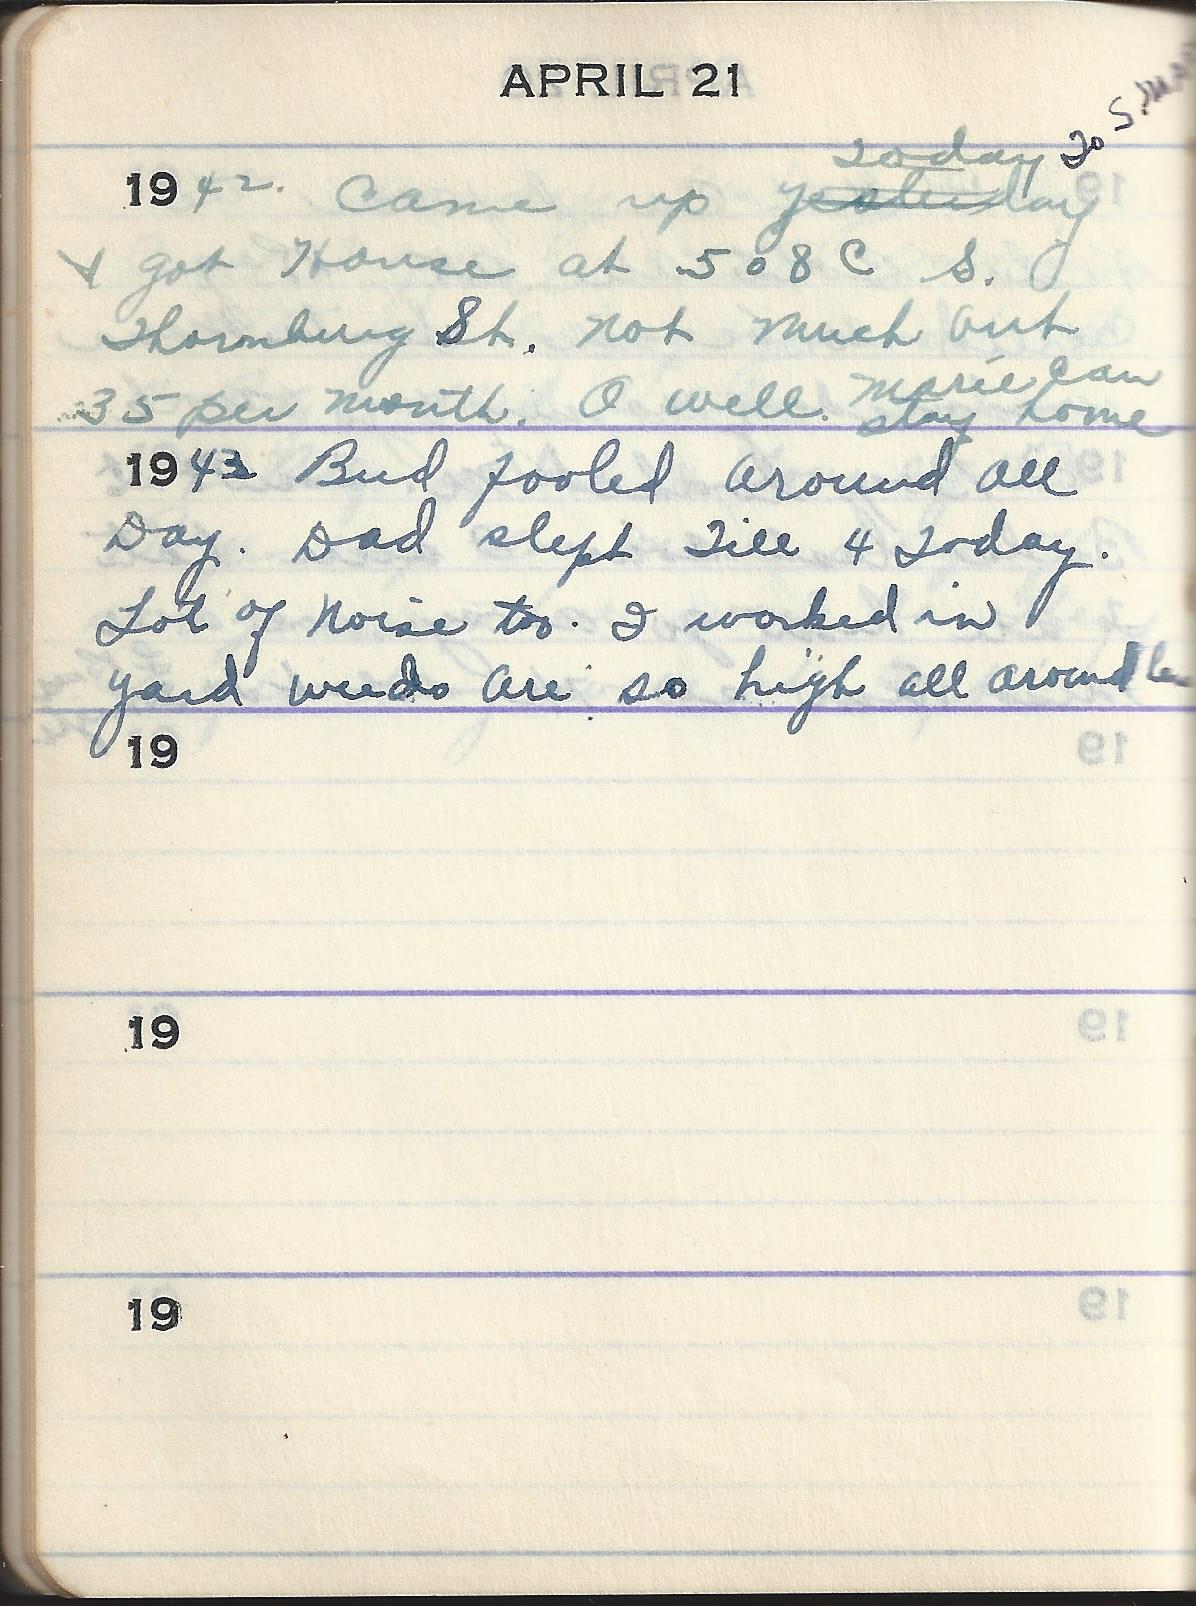 APRIL 21
Today To S. Mar
1942. Came up yesterday
& got House at 508 C S.
Thornburg St. Not Much but
35 per month. O well. Marie can
stay home
1943 Bud fooled around all
Day. Dad slept Till 4 Today.
Lot of Noise too. I worked in
yard weeds are so high all around
19
19
19